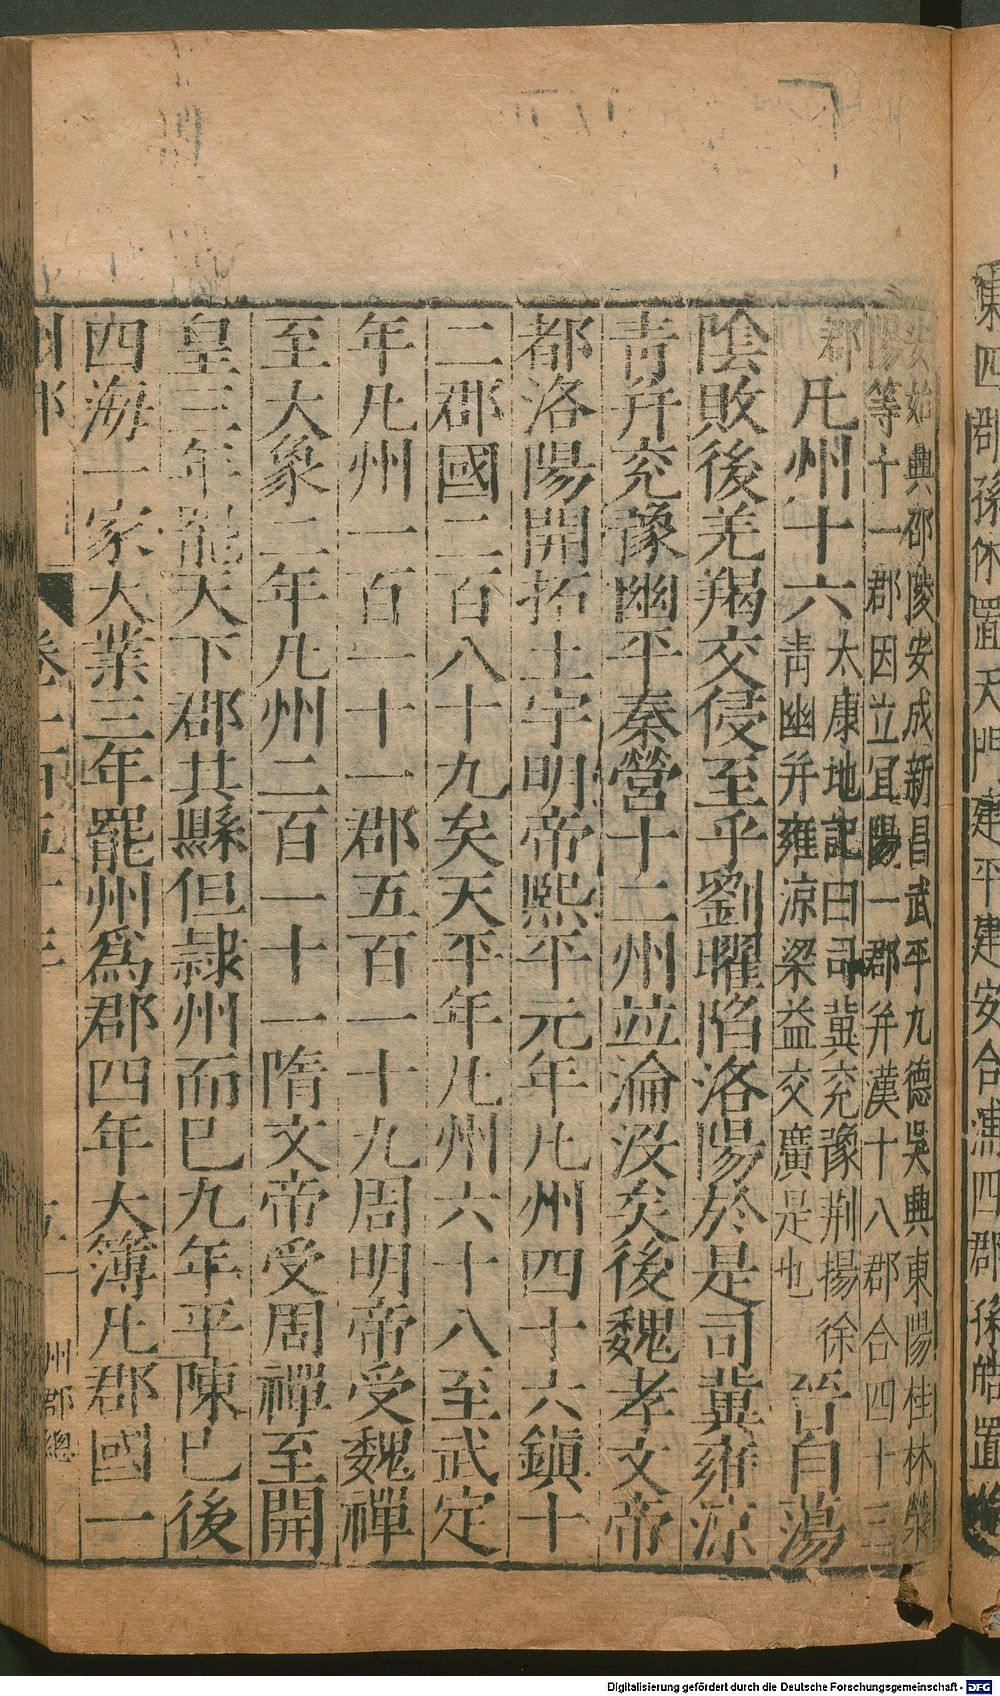 東四郡孫休置天門建平建安合浦四郡孫皓置
安始興邵陵安成新昌武平九德吳興東陽桂林滎
陽等十一郡因立宜陽一郡并漢十八郡合四十三
郡凡州十六
太康地記曰司冀兖豫荆揚徐
青幽并雍凉梁益交廣是也
晉自蕩
陰敗後羌羯交侵至乎劉曜陷洛陽於是司冀雍凉
青并兖豫幽平秦營十二州並淪没矣後魏孝文帝
都洛陽開拓土宇明帝熙平元年凡州四十六鎮十
二郡國二百八十九矣天平年凡州六十八至武定
年凡州一百一十一郡五百一十九周明帝受魏禪
至大象二年凡州二百一十一隋文帝受周禪至開
皇三年罷天下郡其縣但隷州而已九年平陳已後
四海一家大業三年罷州爲郡四年大簿凡郡國一
州郡總
Digitalisierung gefördert durch die Deutsche Forschungsgemeinschaft - DFG